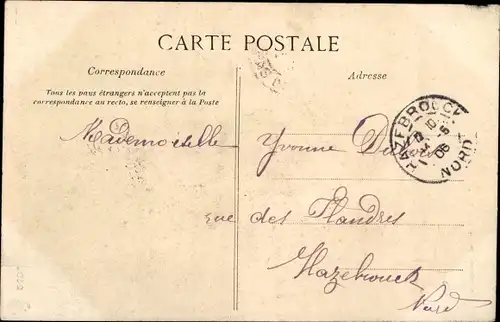 CARTE POSTALE
Correspondance
Adresse
Tous les pays étrangers n'acceptent pas la
correspondance au recto, se renseigner à la Poste
HAZEBROUCK
NORD
Mademoiselle
Yvonne
rue des Flandres
Hazebrouck
Nord